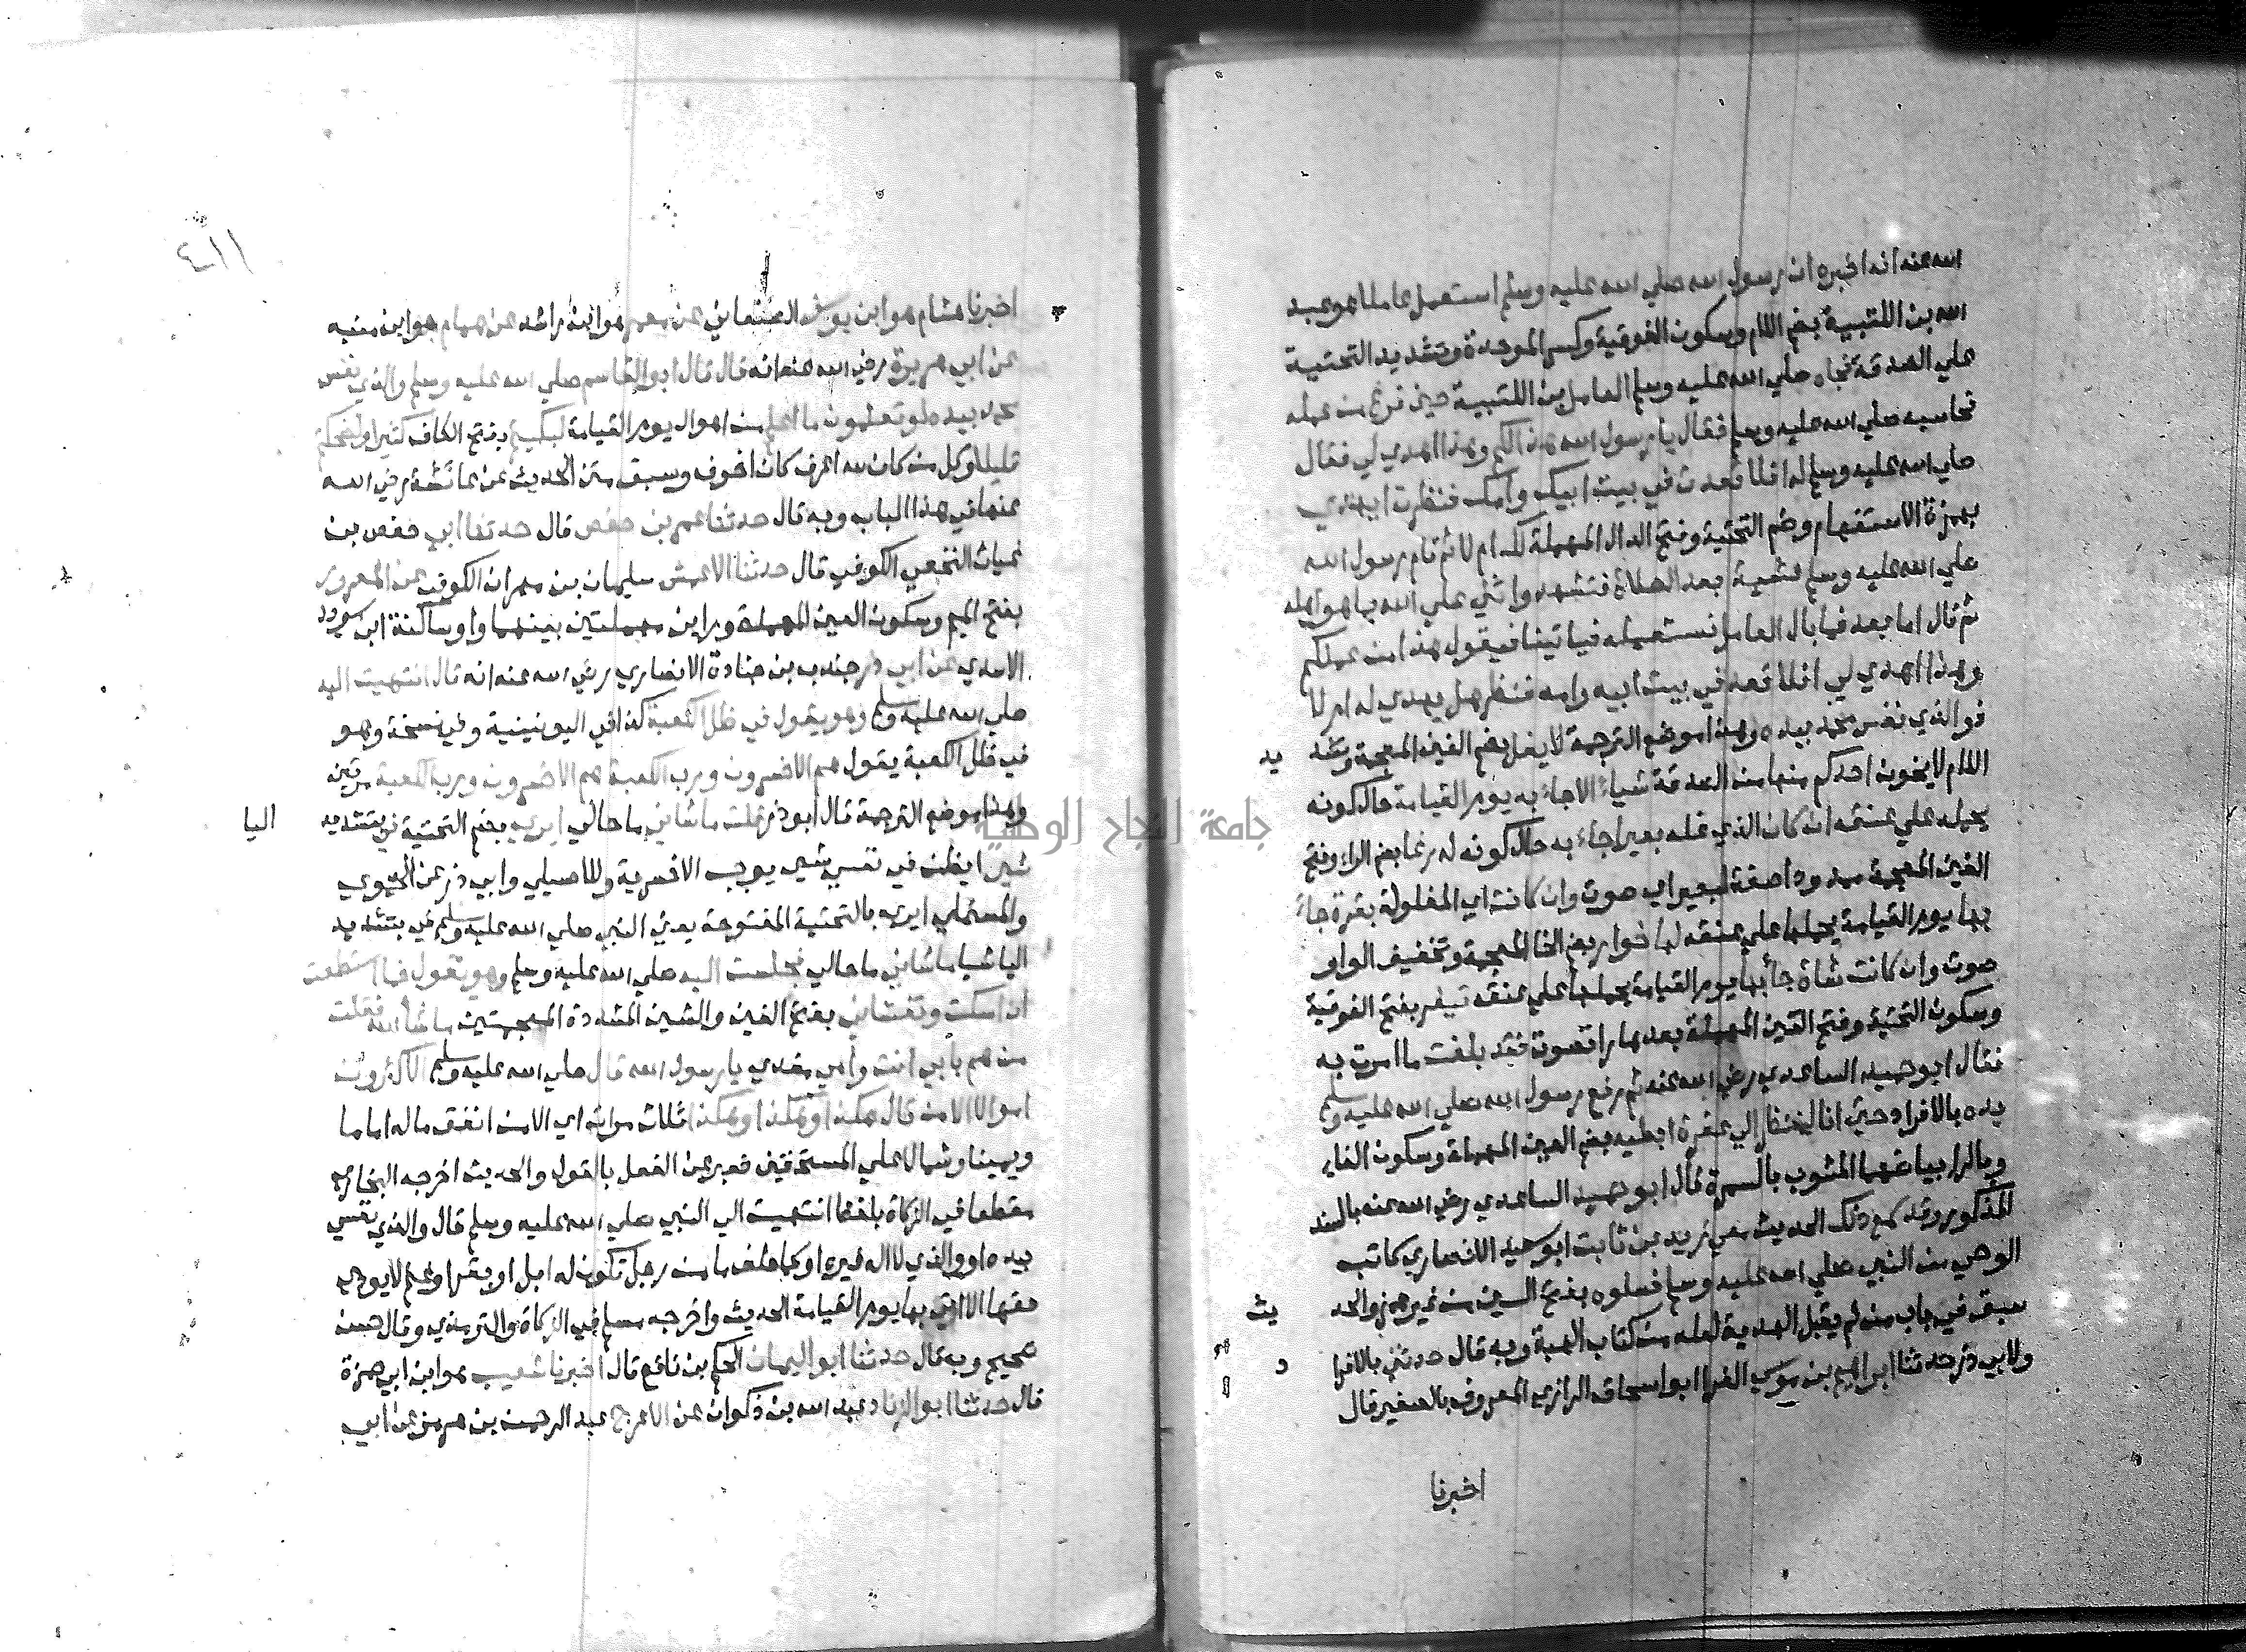 الله عنه انه اخبره ان رسول الله صلي الله عليه وسلم استعمل عاملا هو عبد
الله بن اللتبية بضم اللام وسكون الفوقية وكسر الموحدة وتشديد التحتية
علي الصدقة فجاه صلي الله عليه وسلم العامل بن اللتبية حين فرغ من عمله
فحاسبه صلي الله عليه وسلم فقال يا رسول الله هذا لكم وهذا اهدي لي فقال
صلي الله عليه وسلم له افلا قعدت في بيت ابيك وامك فنظرت ايهدي
بهمزة الاستفهام وضم التحتية وفتح الدال المهملة لك ام لا ثم قام رسول الله
صلي الله عليه وسلم عشية بعد الصلاة فتشهد واثني علي الله بما هو اهله
ثم قال اما بعد فما بال العامل نستعمله فياتينا فيقول هذا من عملكم
وهذا اهدي لي افلا قعد في بيت ابيه وامه فنظر هل يهدي له ام لا
فوالذي نفس محمد بيده وهذا موضع الترجمة لا يغل بضم الغين المعجمة وتشد يد
اللام لا يخون احدكم منها من الصدقة شياء الا جاء به يوم القيامة حال كونه
يحمله علي عنقه ان كان الذي غله بعيرا جاء به حال كونه له رغا بضم الراء وفتح
الغين المعجمة ممدودا صفة لبعير اي صوت وان كانت اي المغلولة بقرة جاء
بها يوم القيامة يحملها علي عنقه لها خوار بضم الخا المعجمة وتخفيف الواو
صوت وان كانت شاة جا بها يوم القيامة يحملها علي عنقه تيعر بفتح الفوقية
وسكون التحتية وفتح العين المهملة بعدها را تصوت فقد بلغت ما امرت به
فقال ابو حميد الساعدي رضي الله عنه ثم رفع رسول الله صلي الله عليه وسلم
يده بالافراد حتي انا لننظر الي عفرة ابطيه بضم العين المهملة وسكون الفاء
وبالرا بياضهما المشوب بالسمرة قال ابو حميد الساعدي رضي الله عنه بالسند
المذكور وقد سمع ذلك الحديث معي زيد بن ثابت ابو سعيد الانصاري كاتب
الوحي من النبي صلي الله عليه وسلم فسلوه بفتح السين من غير همز والحد يث
سبق في باب من لم يقبل الهدية لعله من كتاب الهبة وبه قال حدثني بالافرا د
ولابي ذر حدثنا ابراهيم بن موسي الفرا ابو اسحاق الرازي المعروف بالصغير قال
اخبرنا
اخبرنا هشام هو ابن يوسف الصنعاني عن معمر هو ابن راشد عن همام هو ابن منبه
عن ابي هريرة رضي الله عنه انه قال قال ابو القاسم صلي الله عليه وسلم والذي نفس
محمد بيده لو تعلمون ما اعلم من اهوال يوم القيامة لبكيتم بفتح الكاف كثيرا ولضحكتم
قليلا وكل من كان لله اعرف كان اخوف وسبق متن الحديث عن عائشة رضي الله
عنها في هذا الباب وبه قال حدثنا عمر بن حفص قال حدثنا ابي حفص بن
غياث النخعي الكوفي قال حدثنا الاعمش سليمان بن مهران الكوفي عن المعرور
بفتح الميم وسكون العين المهملة وراين مهملتين بينهما واو ساكنة ابن سويد
الاسدي عن ابي ذر جندب بن جنادة الانصاري رضي الله عنه انه قال انتهيت اليه
صلي الله عليه وسلم وهو يقول في ظل الكعبة كذا في اليونينية وفي نسخة وهو
في ظل الكعبة يقول هم الاخسرون ورب الكعبة هم الاخسرون ورب الكعبة مرتين
وهذا موضع الترجمة قال ابو ذر قلت ما شاني ما حالي ايري بضم التحتية في بتشديد اليا
شي ايظن في نفسي شي يوجب الاخسرية وللاصيلي وابي ذر عن الحموي
والمستملي ايري بالتحتية المفتوحة يعني النبي صلي الله عليه وسلم في بتشديد
اليا شيا ما شاني ما حالي فجلست اليه صلي الله عليه وسلم وهو يقول فما استطعت
ان اسكت وتغشاني بفتح الغين والشين المشددة المعجمتين ما شا الله فقلت
من هم بابي انت وامي مفدي يا رسول الله قال صلي الله عليه وسلم الاكثرون
اموالا الا من قال هكذا وهكذا وهكذا ثلاث مرات اي الا من انفق ماله اماما
ويمينا وشمالا علي المستحقين فعبر عن الفعل بالقول والحديث اخرجه البخاري
مقطعا في الزكاة بلفظ انتهيت الي النبي صلي الله عليه وسلم قال والذي نفسي
بيده او والذي لا اله غيره او كما حلف ما من رجل تكون له ابل او بقر او غنم لا يودي
حقها الا اتي بها يوم القيامة الحديث واخرجه مسلم في الزكاة والترمذي وقال حسن
صحيح وبه قال حدثنا ابو اليمان الحكم بن نافع قال اخبرنا شعيب هو ابن ابي حمزة
قال حدثنا ابو الزناد عبد الله بن ذكوان عن الاعرج عبد الرحمن بن هرمز عن ابي
جامعة النجاح الوطنية